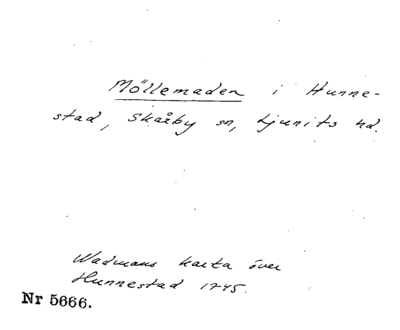 Möllemaden i Hunne-
stad, Skårby sn, Ljunits hd.
Wadmans karta över
Hunnestad 1745.
Nr 5666.